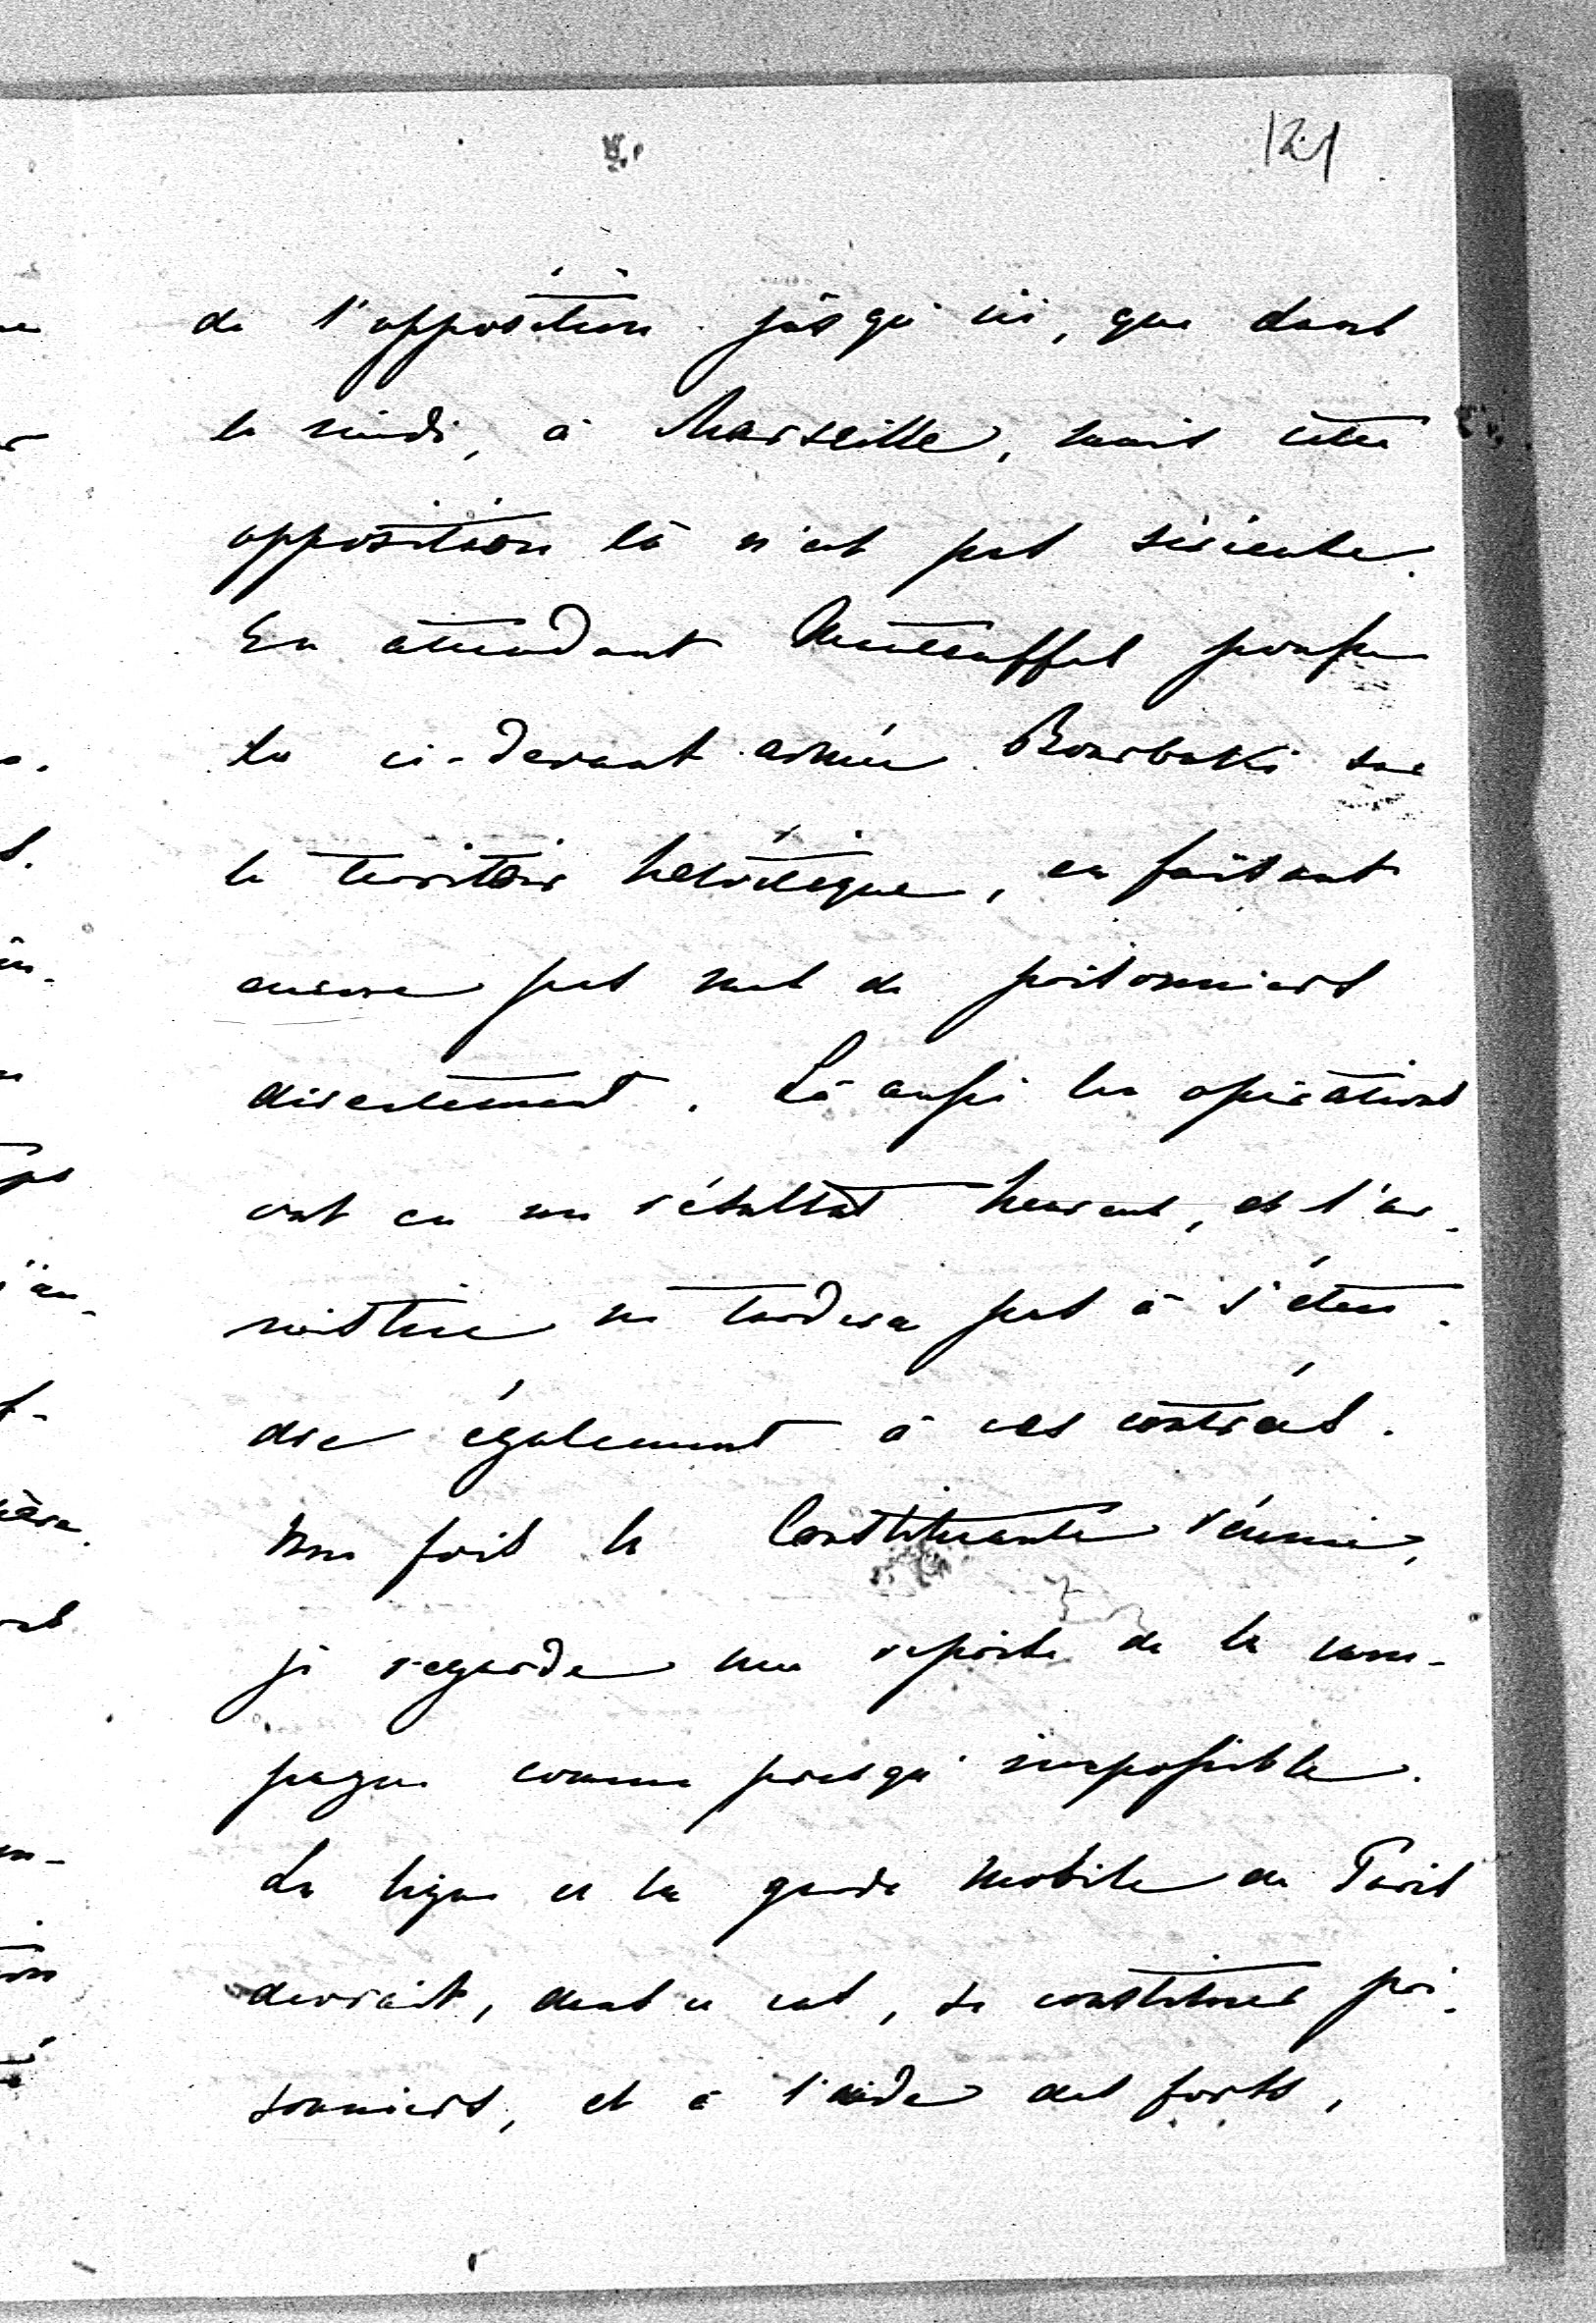 121
de l'opposition jusqu'ici, que dans
le midi, à Marseille, mais cette
opposition là n'est pas sérieuse.
En attendant Manteuffel pousse
la ci-devant armée Bourbaki sur
le territoir helvétique, en faisant
encore pas mal de prisonniers
directement. Là aussi les opérations
ont eu un résultat heureux, et l'ar-
mistice ne tardera pas à s'éten-
dre également à ces contrées.
Une fois la Constituante réunie,
je regarde une reprise de la cam-
pagne comme presqu'impossible.
La ligne et la garde mobile de Paris
devrait, dans ce cas, se constituer pri-
sonniers, et à l'aide des forts,